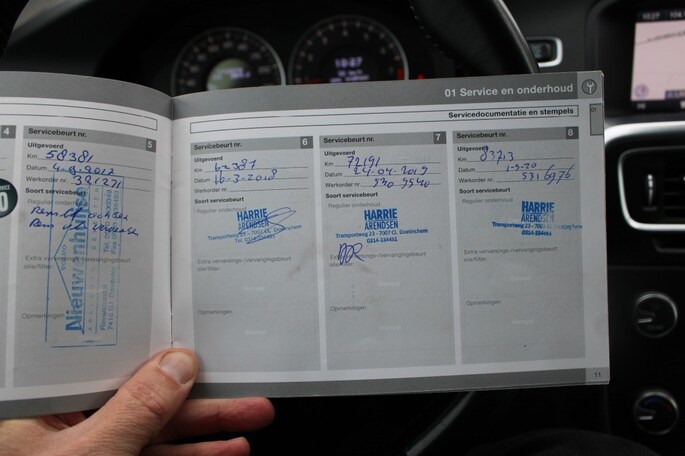 10:27
01 Service en onderhoud
Servicedocumentatie en stempels
4
Servicebeurt nr. 5
Uitgevoerd
Km 58381
Datum
Werkorder nr. 391271
Soort service
Regulier onderhoud
Extra verversings-/vervangingsbeurt
olie/filter:
Opmerkingen
Nieuwenhuijse
VOLVO
Servicebeurt nr. 6
Uitgevoerd
Km 62381
Datum 16-3-2018
Werkorder nr.
Soort servicebeurt
Regulier onderhoud
HARRIE
ARENDSEN
Transportweg 23 - 7007 CL Doetinchem
Extra verversings-/vervangingsbeurt
olie/filter:
Opmerkingen
Servicebeurt nr. 7
Uitgevoerd
Km 72191
Datum 24-04-2019
Werkorder nr. 530 9540
Soort servicebeurt
Regulier onderhoud
HARRIE
ARENDSEN
Transportweg 23 - 7007 CL Doetinchem
0314-334451
Extra verversings-/vervangingsbeurt
olie/filter:
Opmerkingen
Servicebeurt nr. 8
Uitgevoerd
Km 83713
Datum 1-5-20
Werkorder nr. 5316976
Soort servicebeurt
Regulier onderhoud
HARRIE
ARENDSEN
0314-334451
Extra verversings-/vervangingsbeurt
olie/filter:
Opmerkingen
11